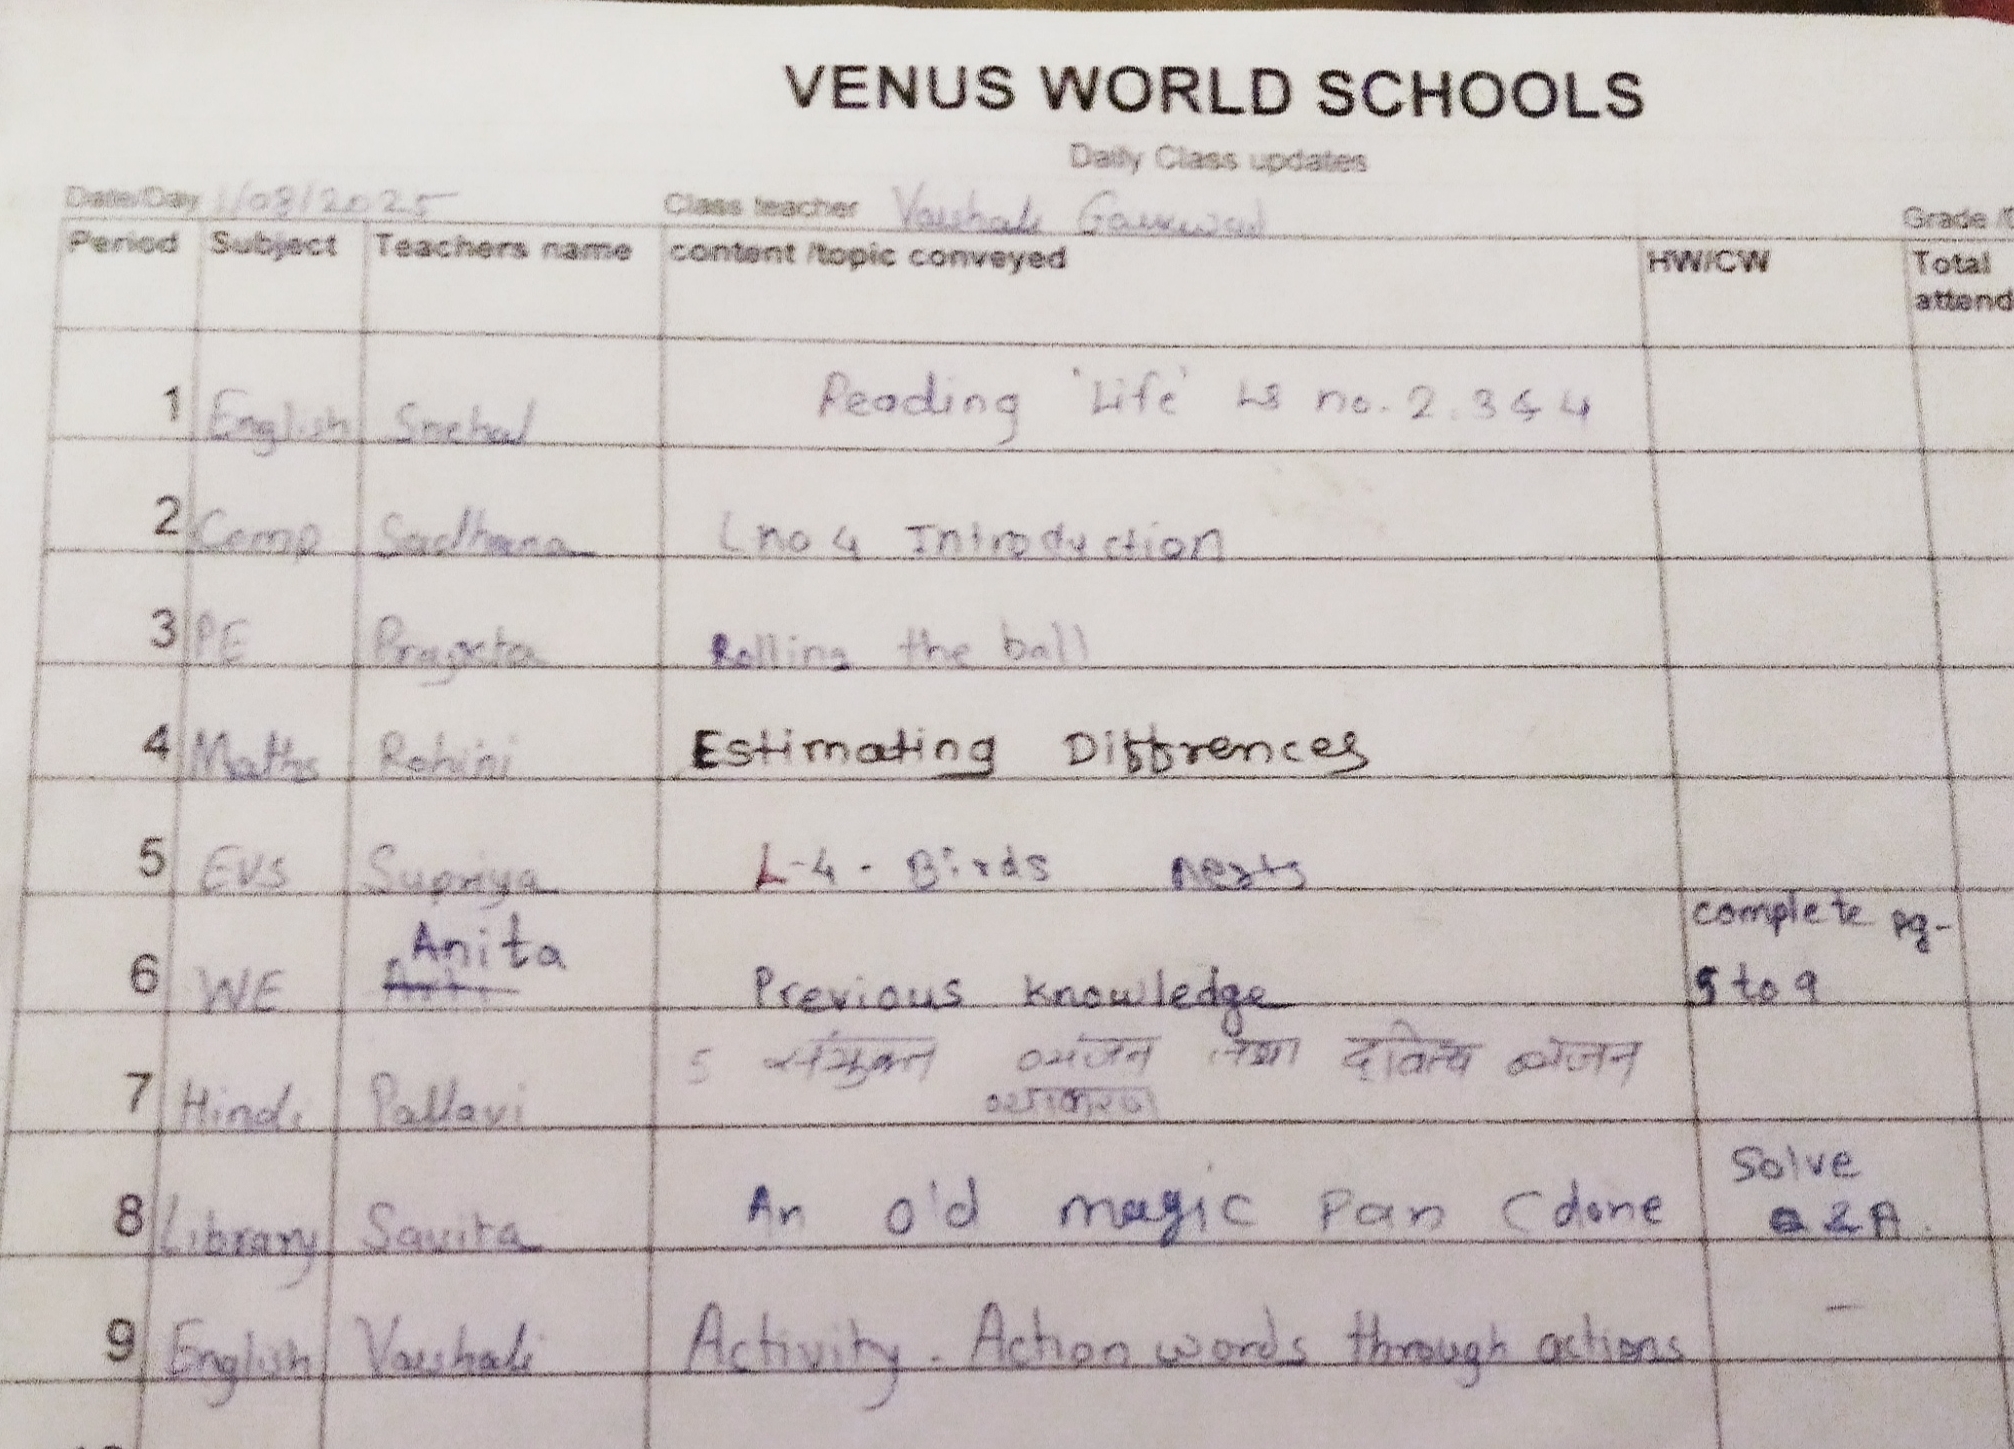 VENUS WORLD SCHOOLS
Daily Class updates
Date/Day 1/08/2025 Class teacher Vaishali Gaikwad Grade
Period Subject Teachers name content /topic conveyed HW/CW Total
attend
1 English Snehal Reading 'Life' Ls no. 2.3 & 4
2 Comp Sadhana L no 4 Introduction
3 PE Prajakta Rolling the ball
4 Maths Rohini Estimating Diffrences
5 EVS Supriya L-4 - Birds nests
complete pg-
6 WE Anita Previous knowledge 5 to 9
5 संयुक्त व्यंजन तथा द्वित्व व्यंजन
7 Hindi Pallavi व्याकरण
Solve
8 Library Savita An old magic Pan (done Q & A.
9 English Vaishali Activity - Action words through actions -